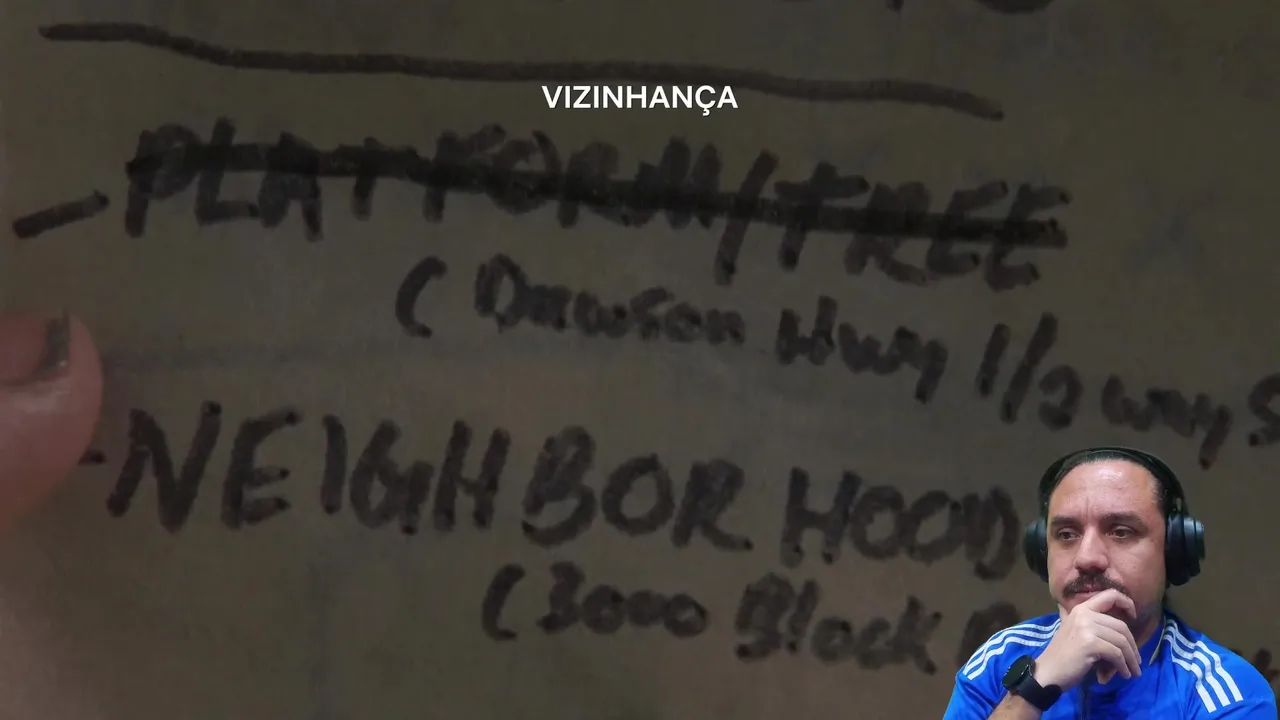 VIZINHANÇA
- PLATFORM/TREE
( Dawson Hwy 1/2 way
- NEIGHBOR HOOD
( 3000 Block